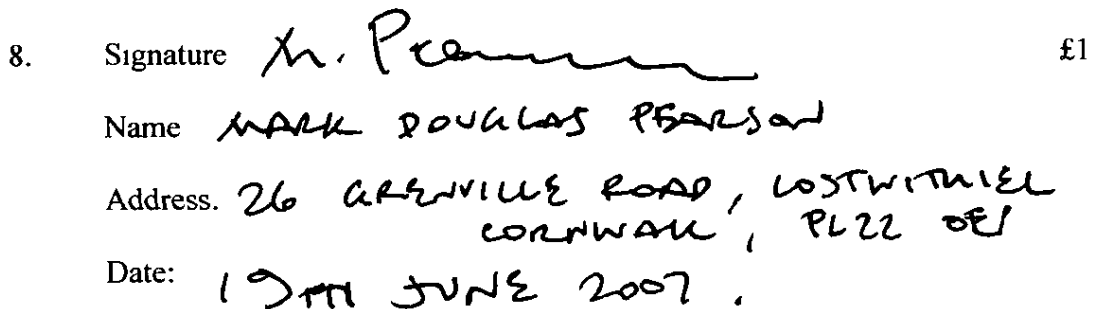 8. Signature M. Pearson £1
Name MARK DOUGLAS PEARSON
Address. 26 GRENVILLE ROAD, LOSTWITHIEL
CORNWALL, PL22
Date: 19TH JUNE 2007.